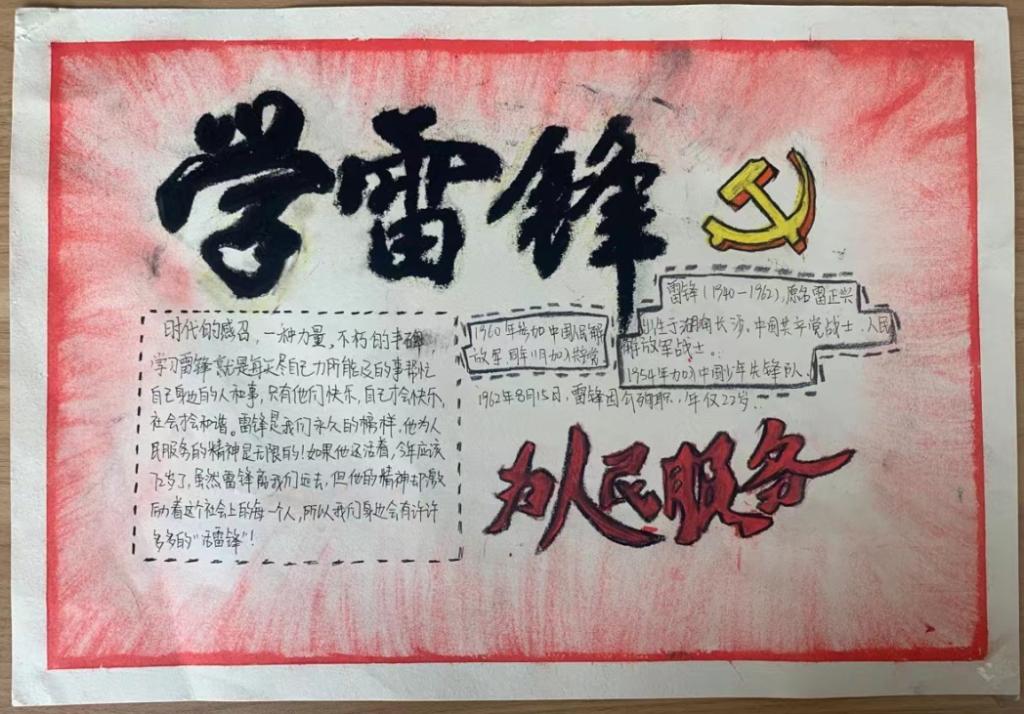 学雷锋
时代的感召，一种力量，不朽的丰碑
学习雷锋就是每天尽自己力所能及的事帮忙
自己身边的人和事，只有他们快乐，自己才会快乐，
社会才会和谐。雷锋是我们永久的榜样，他为人
民服务的精神是无限的！如果他还活着，今年应该
72岁了，虽然雷锋离我们远去，但他的精神却激
励着这个社会上的每一个人，所以我们身边会有许许
多多的“活雷锋”！
1960年参加中国人民解
放军，同年11月加入共产党
雷锋（1940－1962），原名雷正兴
出生于湖南长沙，中国共产党战士、人民
解放军战士。
1954年加入中国少年先锋队
1962年8月15日，雷锋因公殉职，年仅22岁
为人民服务